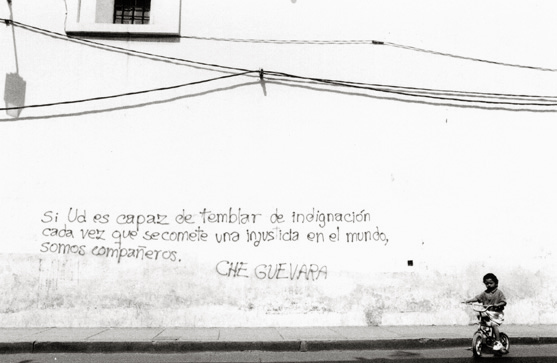 Si Ud es capaz de temblar de indignación
cada vez que se comete una injusticia en el mundo,
somos compañeros.
CHE GUEVARA